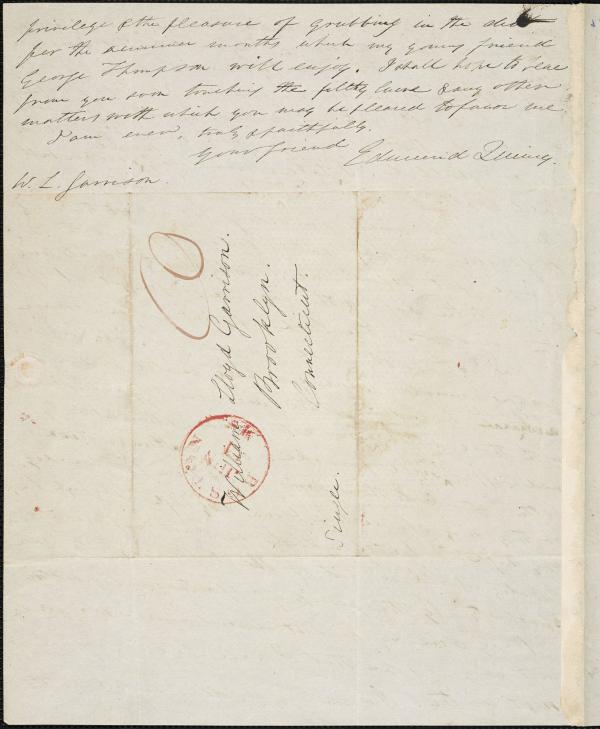 privilege & the pleasure of grubbing in the dirt
for the summer months which my young friend
George Thompson will enjoy. I shall hope to hear
from you soon touching the filthy lucre & any other
matters with which you may be pleased to favor me.
I am ever, truly & faithfully.
Your friend Edmund Quincy.
W. L. Garrison.
William Lloyd Garrison.
Brooklyn.
Connecticut.
Single.